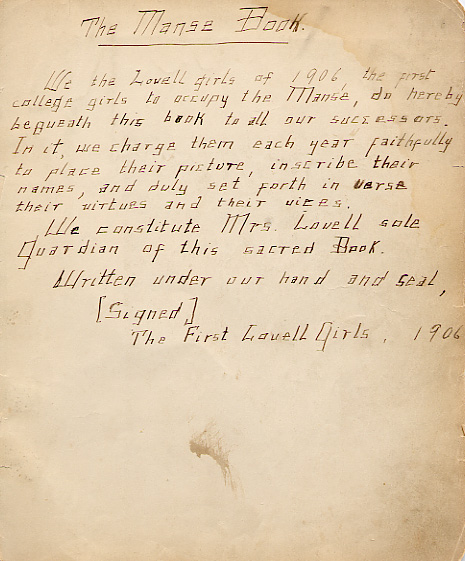 The Manse Book.
We the Lovell girls of 1906 the first
college girls to occupy the Manse, do hereby
bequeath this book to all our successors.
In it, we charge them each year faithfully
to place their picture, inscribe their
names, and duly set forth in verse
their virtues and their vices.
We constitute Mrs. Lovell sole
Guardian of this sacred Book.
Written under our hand and seal,
[Signed]
The First Lovell Girls, 1906